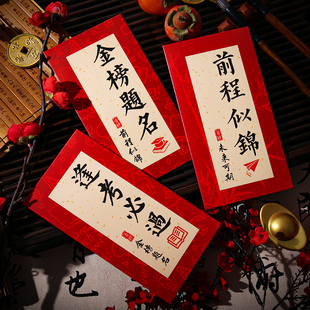 金榜題名
前程似錦
前程似錦
未来可期
逢考必過
金榜題名